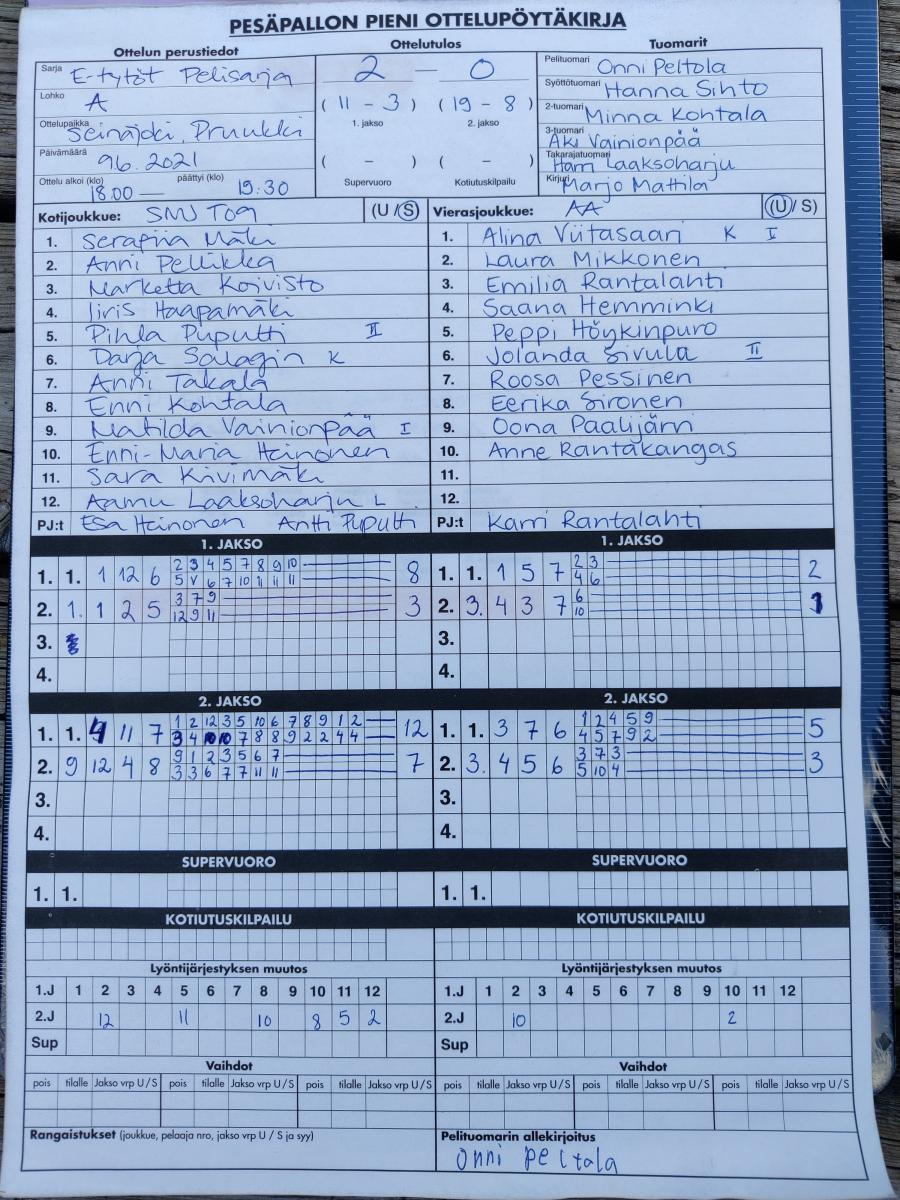 PESÄPALLON PIENI OTTELUPÖYTÄKIRJA
Ottelun perustiedot
Sarja E-tytöt Pelisarja
Lohko A
Ottelupaikka Seinäjoki, Pruukki
Päivämäärä 9.6.2021
Ottelu alkoi (klo) 18.00 — päättyi (klo) 19:30
Ottelutulos
2 – 0
( 11 – 3 ) ( 19 – 8 )
1. jakso 2. jakso
( – ) ( – )
Supervuoro Kotiutuskilpailu
Tuomarit
Pelituomari Onni Peltola
Syöttötuomari Hanna Sihto
2-tuomari Minna Kohtala
3-tuomari Aki Vainionpää
Takarajatuomari Harri Laaksoharju
Kirjuri Marjo Mattila
Kotijoukkue: SMJ T09 (U / S)
1. Serafiia Mäki
2. Anni Pellikka
3. Marketta Koivisto
4. Iiris Haapamäki
5. Pihla Puputti II
6. Darja Salagin K
7. Anni Takala
8. Enni Kohtala
9. Matilda Vainionpää I
10. Enni-Maria Heinonen
11. Sara Kivimäki
12. Aamu Laaksoharju L
PJ:t Esa Heinonen Antti Puputti
Vierasjoukkue: AA (U / S)
1. Alina Viitasaari K I
2. Laura Mikkonen
3. Emilia Rantalahti
4. Saana Hemminki
5. Peppi Höykinpuro
6. Jolanda Sivula II
7. Roosa Pessinen
8. Eerika Sironen
9. Oona Paalijärvi
10. Anne Rantakangas
11.
12.
PJ:t Karri Rantalahti
1. JAKSO
2 3 4 5 7 8 9 10
1. 1. 1 12 6 8
5 V 6 7 10 11 11 11
3 7 9
2. 1. 1 2 5 3
12 9 11
3.
4.
1. JAKSO
2 3
1. 1. 1 5 7 2
4 6
6
2. 3. 4 3 7 1
10
3.
4.
2. JAKSO
1 2 12 3 5 10 6 7 8 9 1 2
1. 1. 4 11 7 12
3 4 10 10 7 8 8 9 2 2 4 4
9 1 2 3 5 6 7
2. 9 12 4 8 7
3 3 6 7 7 11 11
3.
4.
2. JAKSO
1 2 4 5 9
1. 1. 3 7 6 5
4 5 7 9 2
3 7 3
2. 3. 4 5 6 3
5 10 4
3.
4.
SUPERVUORO
1. 1.
SUPERVUORO
1. 1.
KOTIUTUSKILPAILU
KOTIUTUSKILPAILU
Lyöntijärjestyksen muutos
1.J 1 2 3 4 5 6 7 8 9 10 11 12
2.J 12 11 10 8 5 2
Sup
Lyöntijärjestyksen muutos
1.J 1 2 3 4 5 6 7 8 9 10 11 12
2.J 10 2
Sup
Vaihdot
pois tilalle Jakso vrp U / S pois tilalle Jakso vrp U / S pois tilalle Jakso vrp U / S
Vaihdot
pois tilalle Jakso vrp U / S pois tilalle Jakso vrp U / S pois tilalle Jakso vrp U / S
Rangaistukset (joukkue, pelaaja nro, jakso vrp U / S ja syy)
Pelituomarin allekirjoitus
Onni Peltola